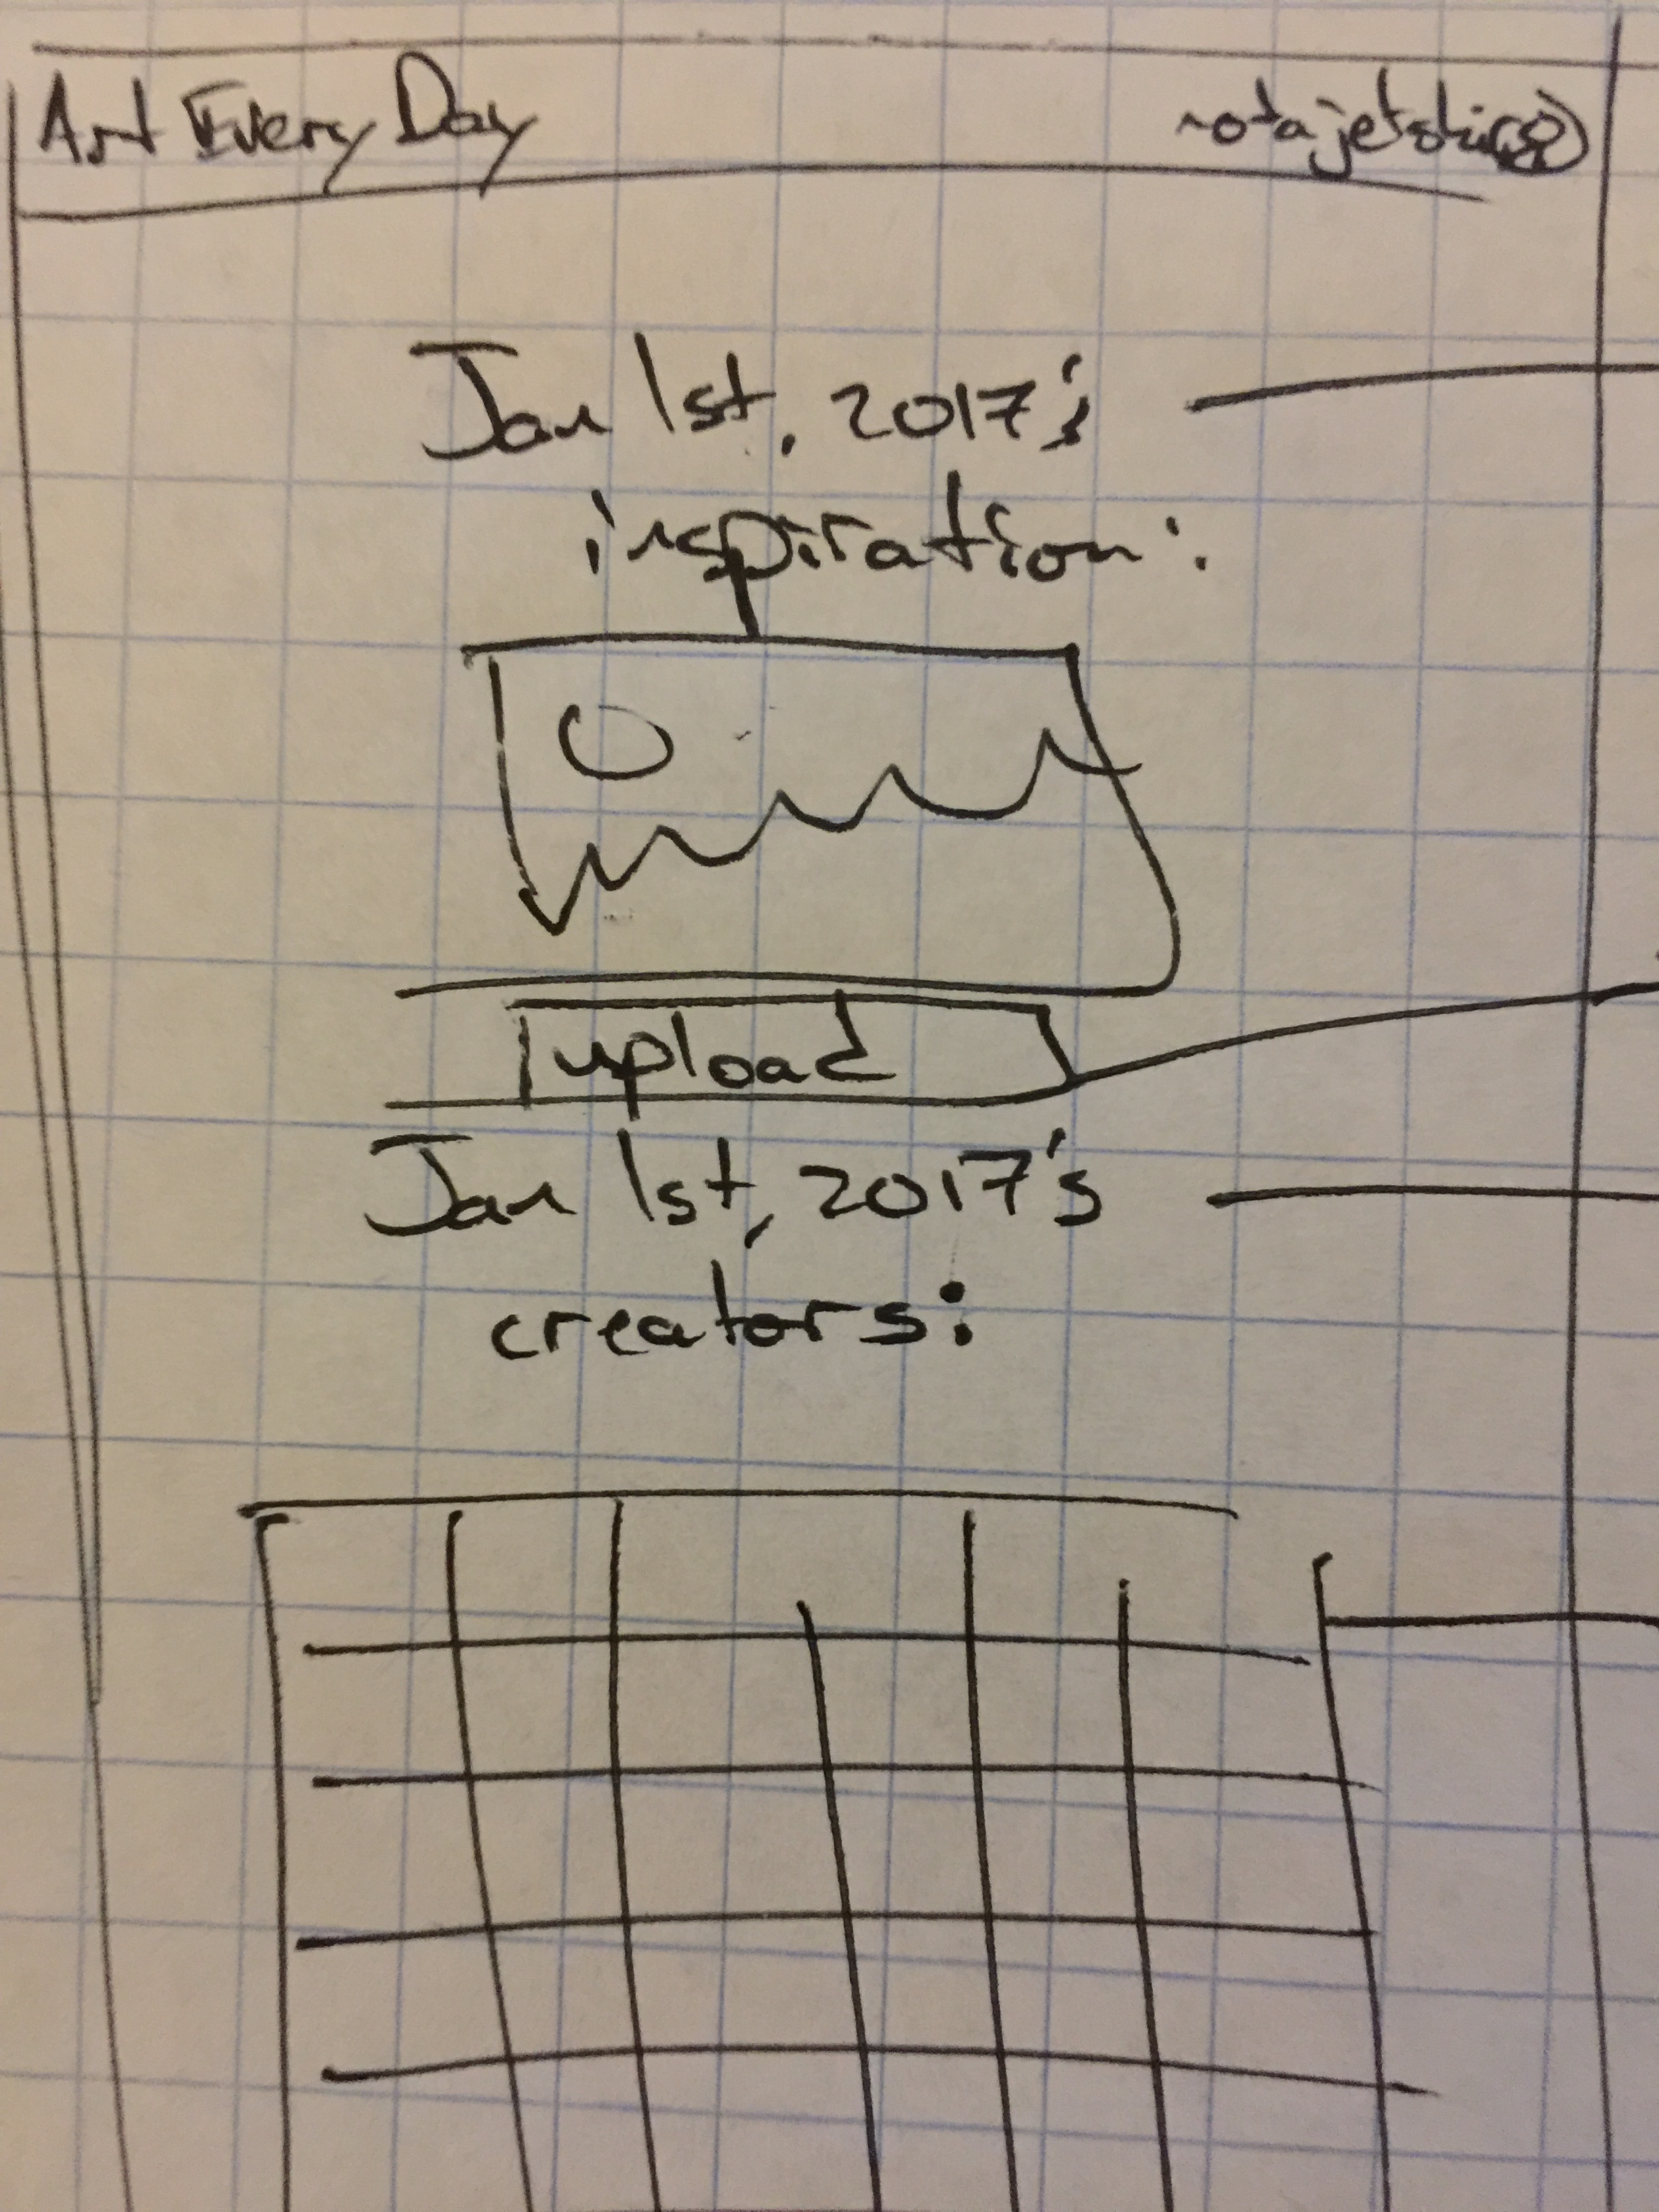 Art Every Day
notajetski
Jan 1st, 2017's
inspiration:
upload
Jan 1st, 2017's
creators: